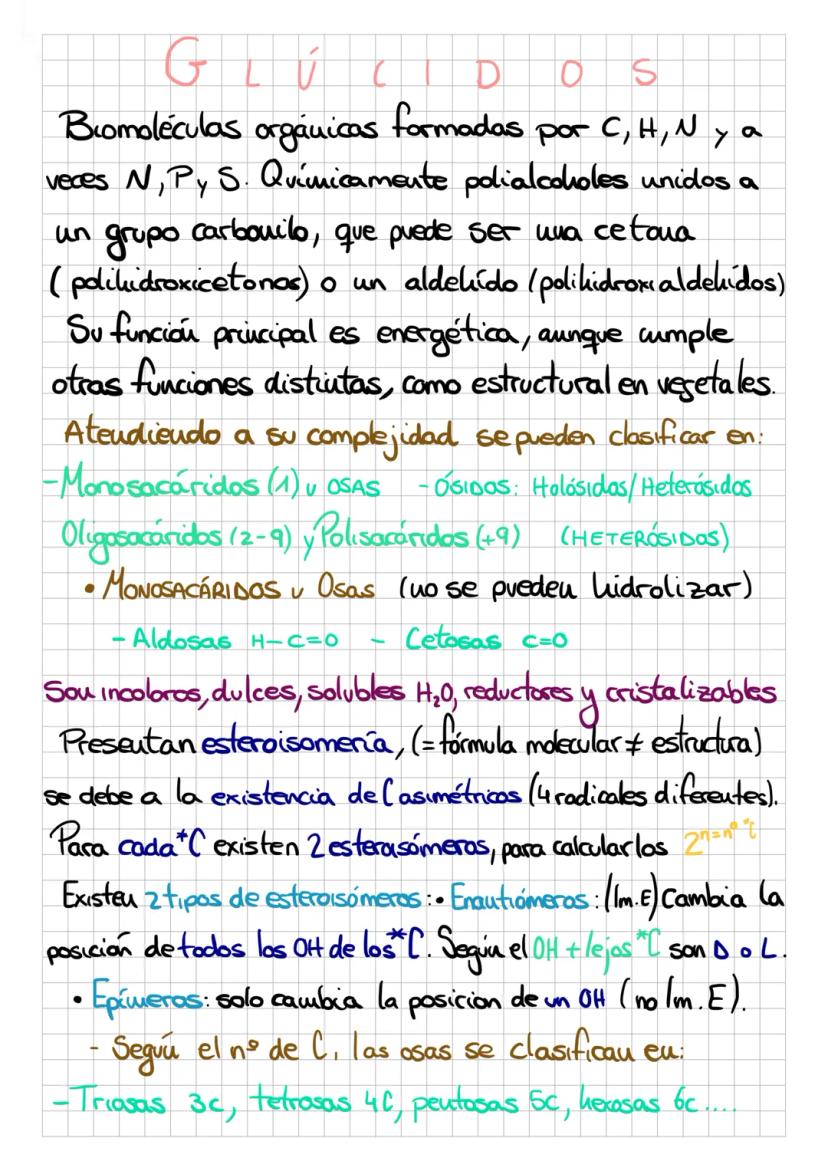 GLÚCIDOS
Biomoléculas orgánicas formadas por C, H, N y a
veces N, P y S. Químicamente polialcoholes unidos a
un grupo carbonilo, que puede ser una cetona
(polihidroxicetonas) o un aldehído (polihidroxialdehídos)
Su función principal es energética, aunque cumple
otras funciones distintas, como estructural en vegetales.
Atendiendo a su complejidad se pueden clasificar en:
- Monosacáridos (1) u OSAS - ÓSIDOS: Holósidos/Heterósidos
Oligosacáridos (2-9) y Polisacáridos (+9) (HETERÓSIDOS)
• MONOSACÁRIDOS u Osas (no se pueden hidrolizar)
- Aldosas H-C=O - Cetosas C=O
Son incoloros, dulces, solubles H₂O, reductores y cristalizables
Presentan esteroisomería, (= fórmula molecular ≠ estructura)
se debe a la existencia de C asimétricos (4 radicales diferentes).
Para cada *C existen 2 esteroisómeros, para calcularlos 2ⁿ⁼ⁿº *ᶜ
Existen 2 tipos de esteroisómeros: • Enantiómeros: (Im.E) Cambia la
posición de todos los OH de los *C. Según el OH + lejos *C son D o L.
• Epímeros: solo cambia la posicion de un OH (no Im. E).
- Según el nº de C, las osas se clasifican en:
- Triosas 3c, tetrosas 4C, pentosas 5c, hexosas 6c....